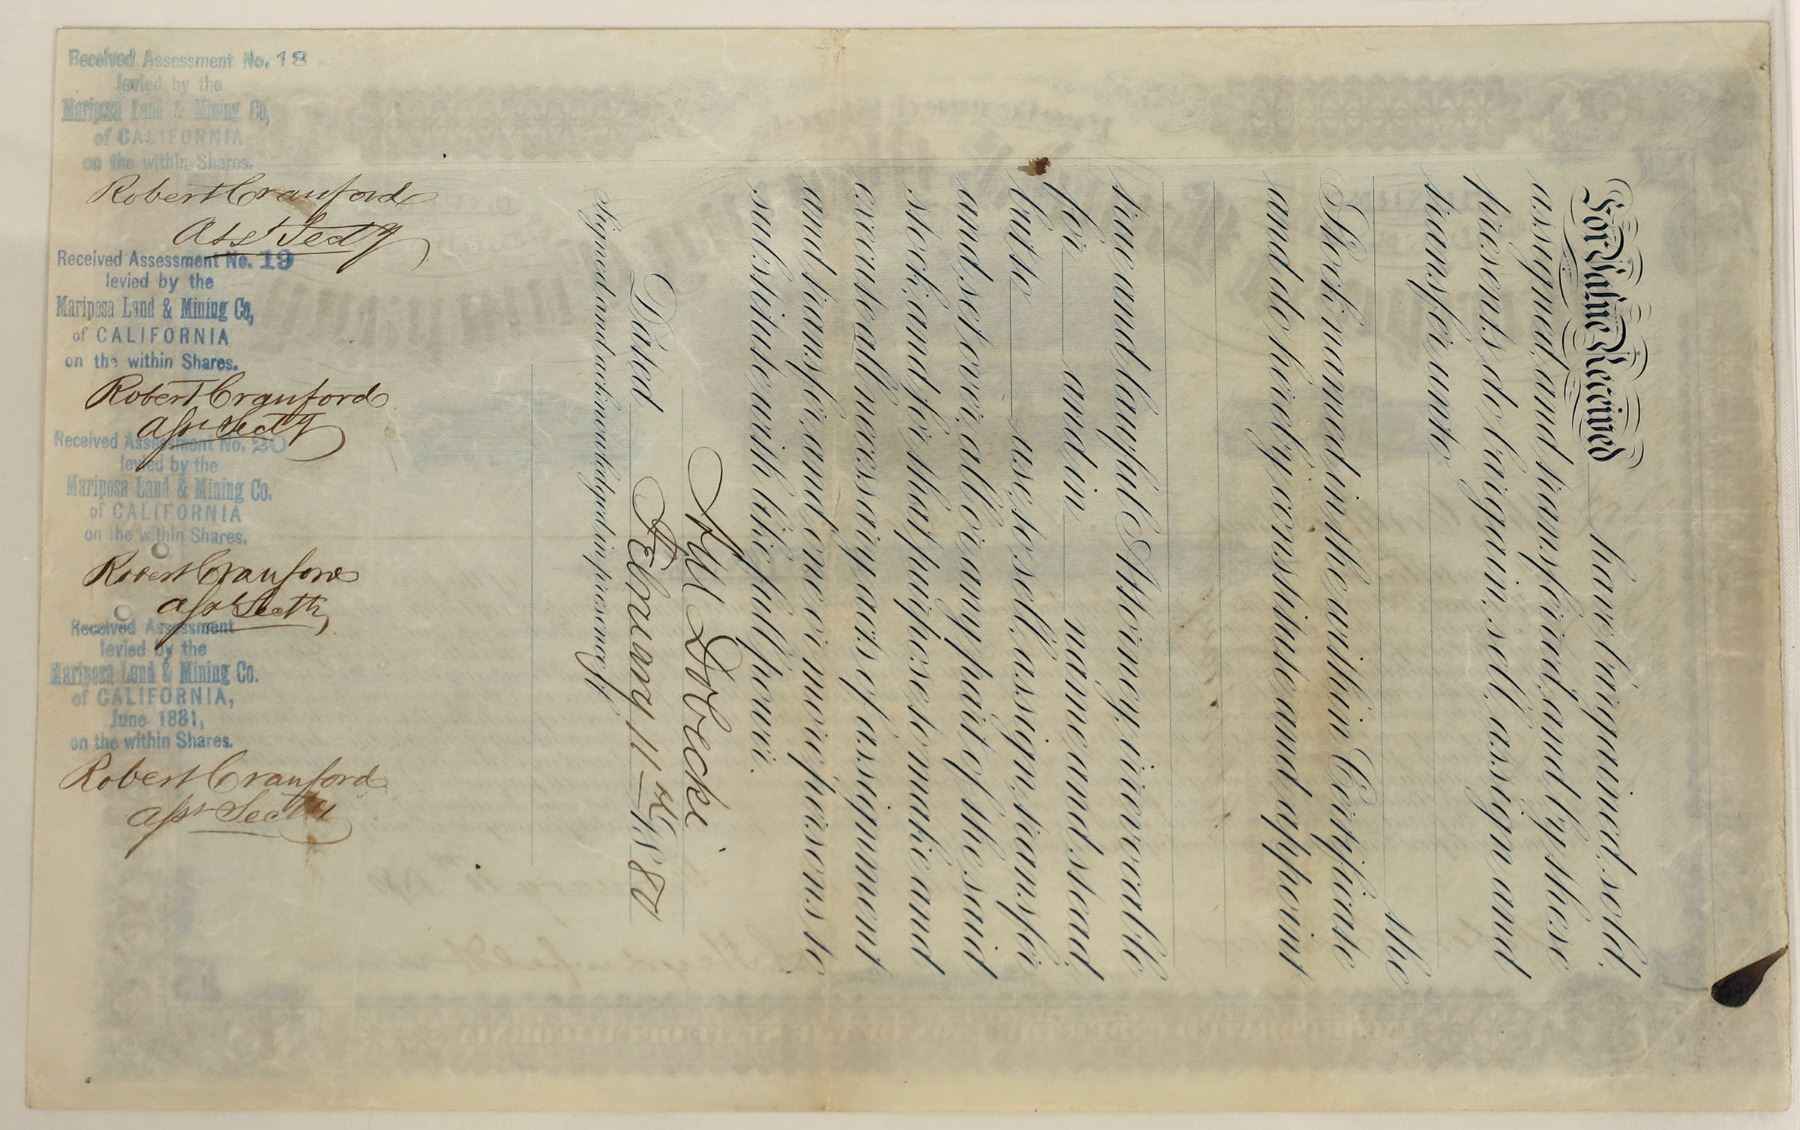 Received Assessment No. 18
levied by the
Mariposa Land & Mining Co,
of CALIFORNIA
on the within Shares.
Robert Cranford
Asst Sect'y
Received Assessment No. 19
levied by the
Mariposa Land & Mining Co,
of CALIFORNIA
on the within Shares.
Robert Cranford
Asst Sect'y
Received Assessment No. 20
levied by the
Mariposa Land & Mining Co.
of CALIFORNIA
on the within Shares,
Robert Cranford
Asst Secty
Received Assessment
levied by the
Mariposa Land & Mining Co.
of CALIFORNIA,
June 1881,
on the within Shares.
Robert Cranford
Asst Secty
For Value Received have bargained, sold,
assigned, and transferred, and by these
presents, do bargain, sell, assign and
transfer, unto
the
Stock, named in the within Certificate
and do hereby constitute and appoint
true and lawful Attorney, irrevocable
for and in name and stead
but to use, to sell, assign, transfer
and set over, all or any part of the said
stock, and for that purpose to make and
execute all necessary acts of assignment
and transfer, and one or more persons to
substitute with like full power.
Dobecke
Dated February 11th 1880
Signed and acknowledged in presence of